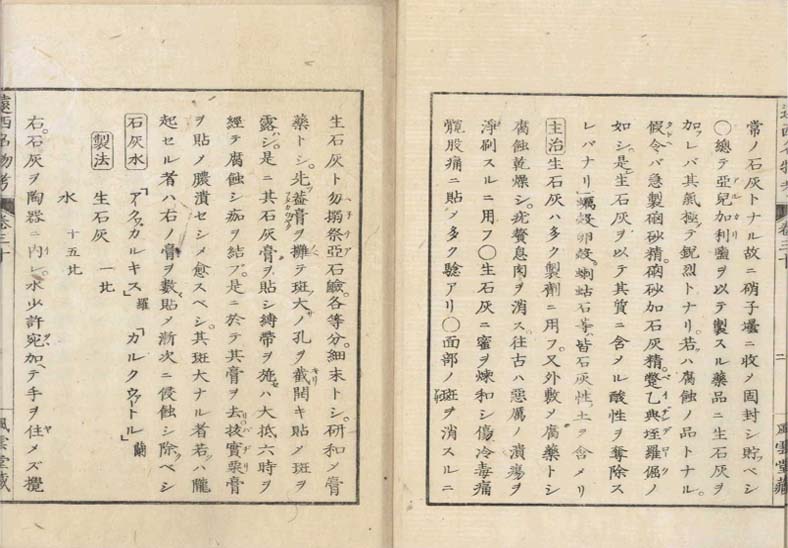 常ノ石灰トナル故ニ硝子壜ニ收メ固封シ貯ベシ
〇總テ亞兒加利蜜ヲ以テ製スル藥品ニ生石灰ヲ
加フレバ其氣極テ鋭烈トナリ。若ハ腐蝕ノ品トナル。
假令バ急製硇砂精。硇砂加石灰精。乙典垤羅倔ノ
如シ。是生石灰ヲ以テ其質ニ含メル酸性ヲ奪除ス
レバナリ」蠣殼卵殼。蝲蛄石等皆石灰性ノ土ヲ含メリ
主治 生石灰ハ多ク製劑ニ用フ。又外敷ノ腐藥トシ
腐蝕乾燥シ。疣贅息肉ヲ消ス往古ハ惡厲ノ潰瘍ヲ
淨刷スルニ用フ〇生石灰ニ蜜ヲ煉和シ傷冷毒痛
髖股痛ニ貼メ多ク驗アリ〇面部ノ斑ヲ消スルニ
二
風雲堂藏
生石灰ト勿搦祭亞石鹼。各等分。細末トシ。研和メ膏
藥トシ。先蓋膏ヲ攤テ斑大ノ孔ヲ截開キ貼メ斑ヲ
露シ。是ニ其石灰膏ヲ貼シ縛帶ヲ施ス大抵六時ヲ
經テ腐蝕シ痂ヲ結ブ。是ニ於テ其膏ヲ去拔實栗膏
ヲ貼メ膿潰セシメ愈スベシ。其斑大ナル者若ハ隴
起セル者ハ右ノ膏ヲ數貼メ漸次ニ侵蝕シ除ベシ
石灰水 「アクアカルキス」羅 「カルクワートル」蘭
製法 生石灰 一比
水 十五比
右。石灰ヲ陶器ニ内レ。水少許宛加ヘテ手ヲ住メズ攪
遠西名物考 卷三十
風雲堂藏